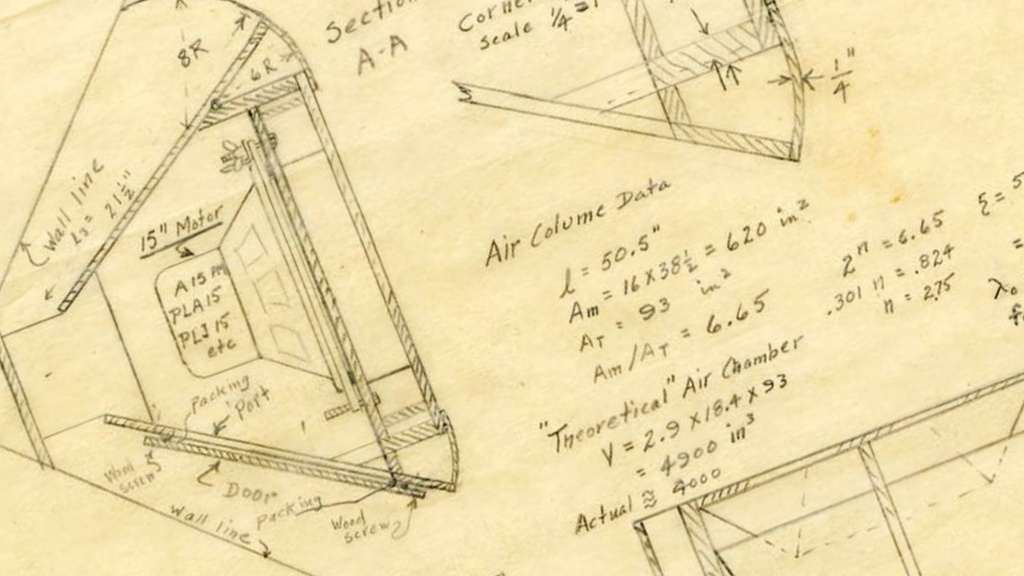 Section
A-A
8R
6R
Wall line
L₂ = 21½"
15" Motor
A 15 PM
PLA 15
PLJ 15
etc
Packing
Port
Wood
screw
Door
Packing
Wood
screw
Wall line
Corner
scale ¼ = 1
1"
4
Air Column Data
l = 50.5"
Am = 16 x 38½ = 620 in²
AT = 93 in²
Am/AT = 6.65
2ⁿ = 6.65
.301 n = .824
n = 2.75
ξ = 5
=
λo
f
"Theoretical" Air Chamber
V = 2.9 x 18.4 x 93
= 4900 in³
Actual ≅ 4000